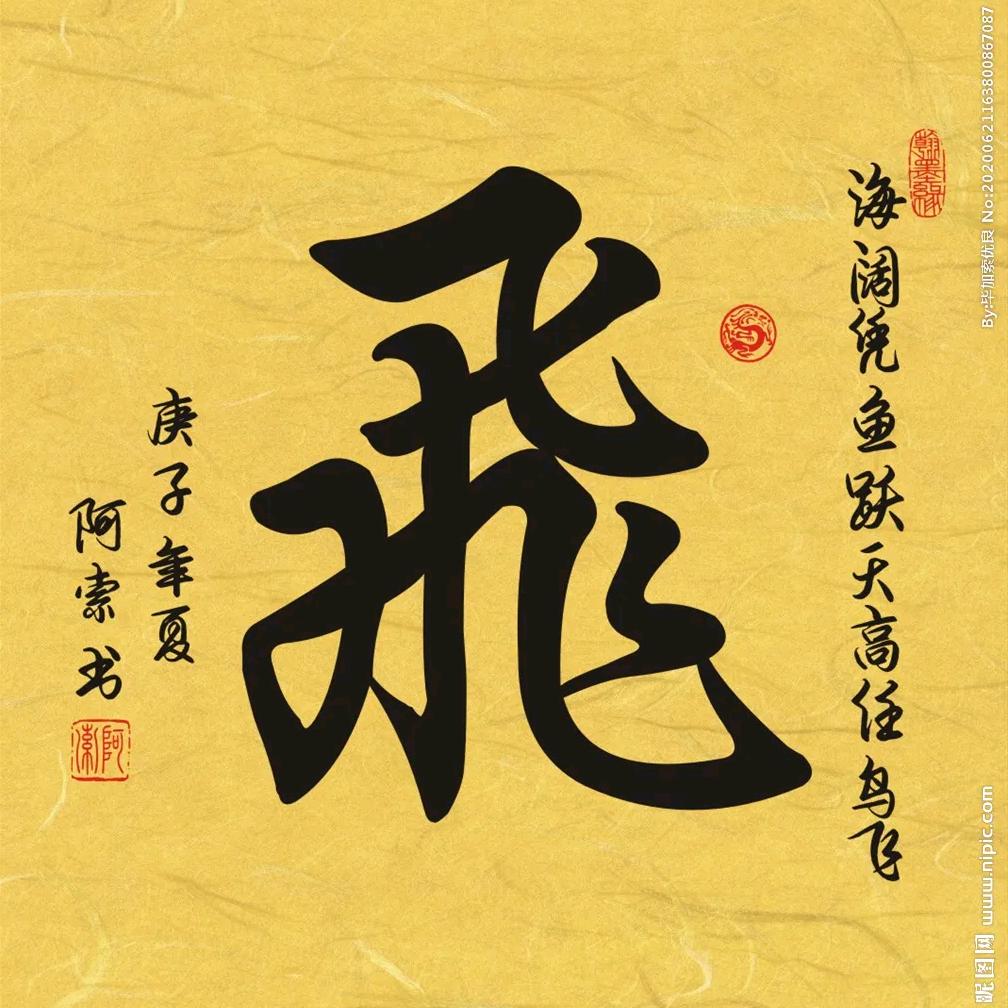 海阔凭鱼跃天高任鸟飞
翰墨缘
飛
庚子年夏
阿索书
阿索
By:毕加索优良 No:20200621163800867087
昵图网 www.nipic.com